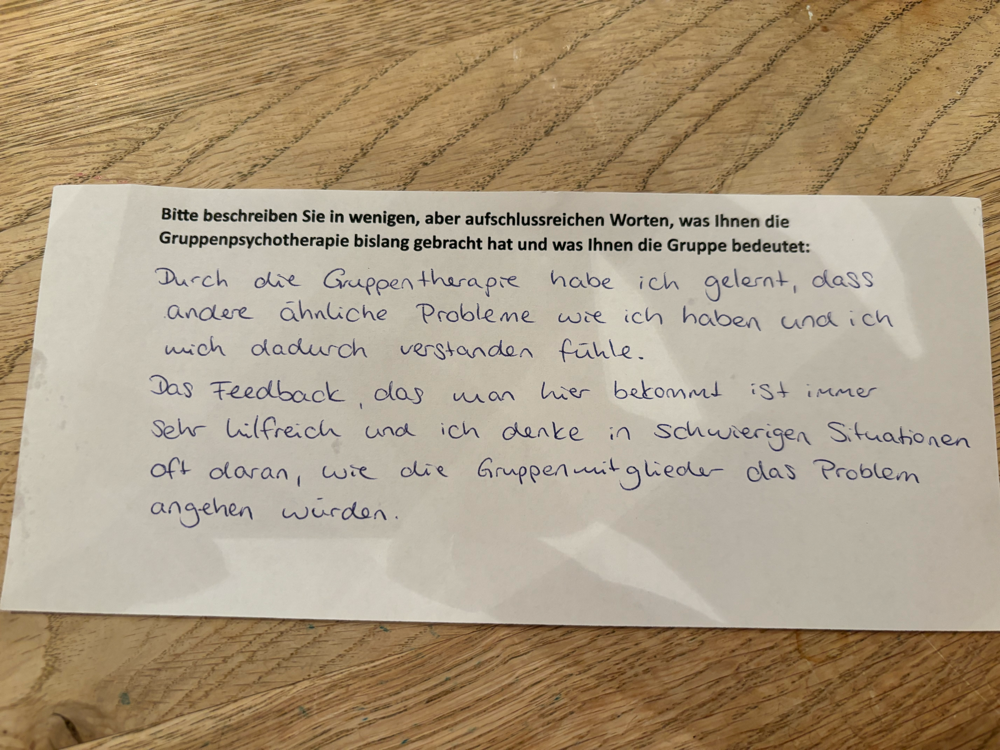 Bitte beschreiben Sie in wenigen, aber aufschlussreichen Worten, was Ihnen die
Gruppenpsychotherapie bislang gebracht hat und was Ihnen die Gruppe bedeutet:
Durch die Gruppentherapie habe ich gelernt, dass
andere ähnliche Probleme wie ich haben und ich
mich dadurch verstanden fühle.
Das Feedback, das man hier bekommt ist immer
sehr hilfreich und ich denke in schwierigen Situationen
oft daran, wie die Gruppenmitglieder das Problem
angehen würden.